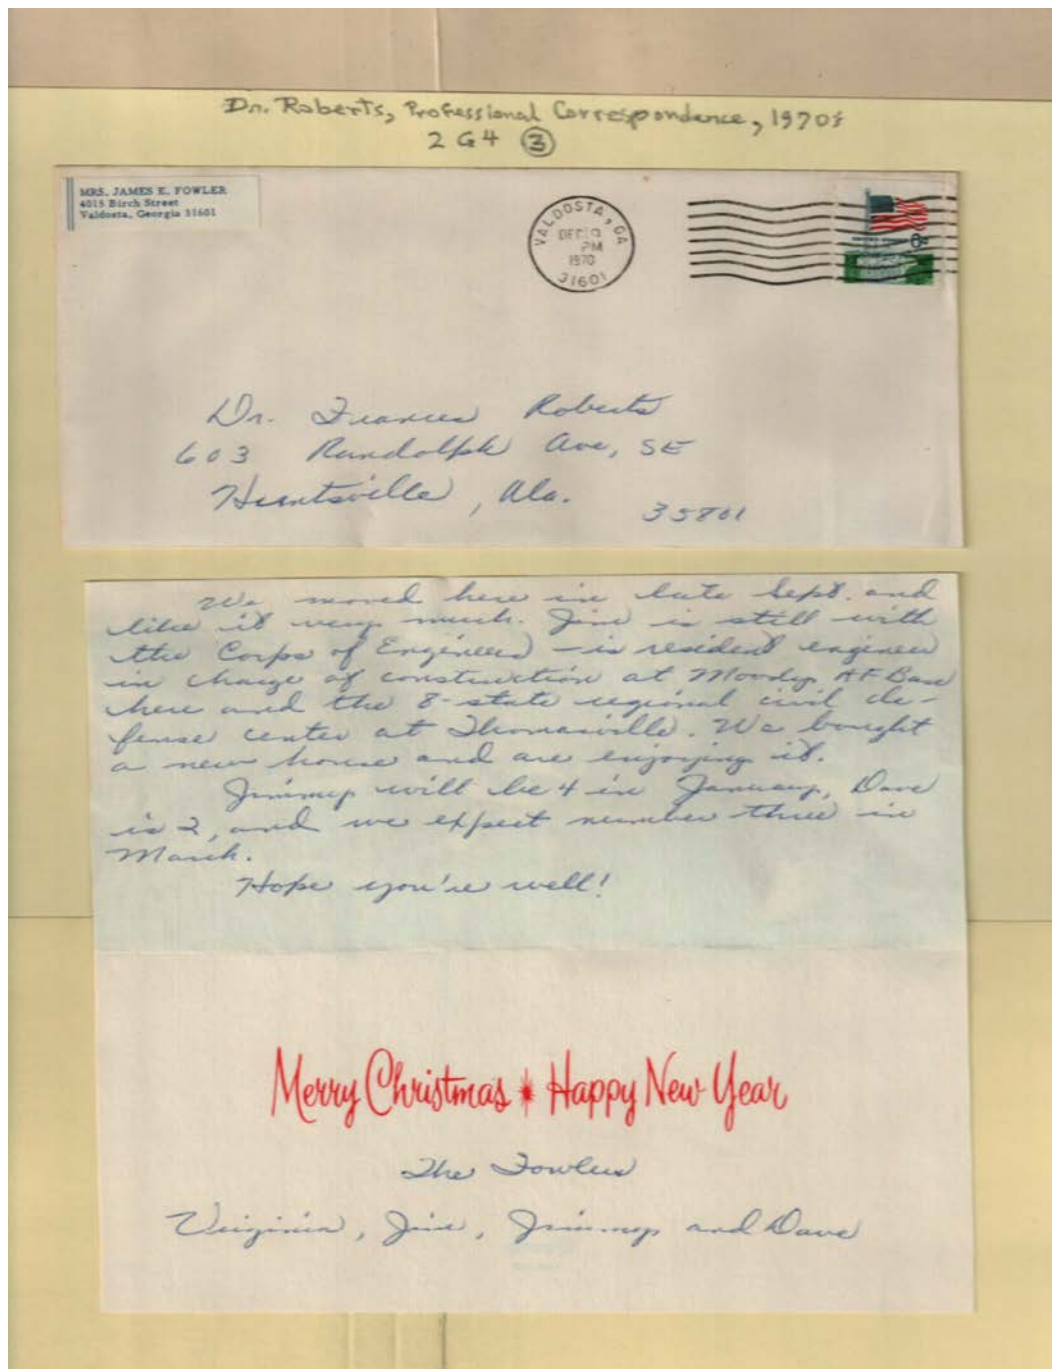 Dr. Roberts, Professional Correspondence, 1970s
2 G4 ③
MRS. JAMES E. FOWLER
4015 Birch Street
Valdosta, Georgia 31601
VALDOSTA, GA
DEC
PM
1970
31601
6¢
Dr. Frances Roberts
603 Randolph Ave, SE
Huntsville, Ala. 35801
We moved here in late Sept. and
like it very much. Jim is still with
the Corps of Engineers – is resident engineer
in charge of construction at Moody AF Base
here and the 8-state regional civil de-
fense center at Thomasville. We bought
a new house and are enjoying it.
Jimmy will be 4 in January, Dave
is 2, and we expect number three in
March.
Hope you're well!
Merry Christmas * Happy New Year
The Fowlers
Virginia, Jim, Jimmy and Dave